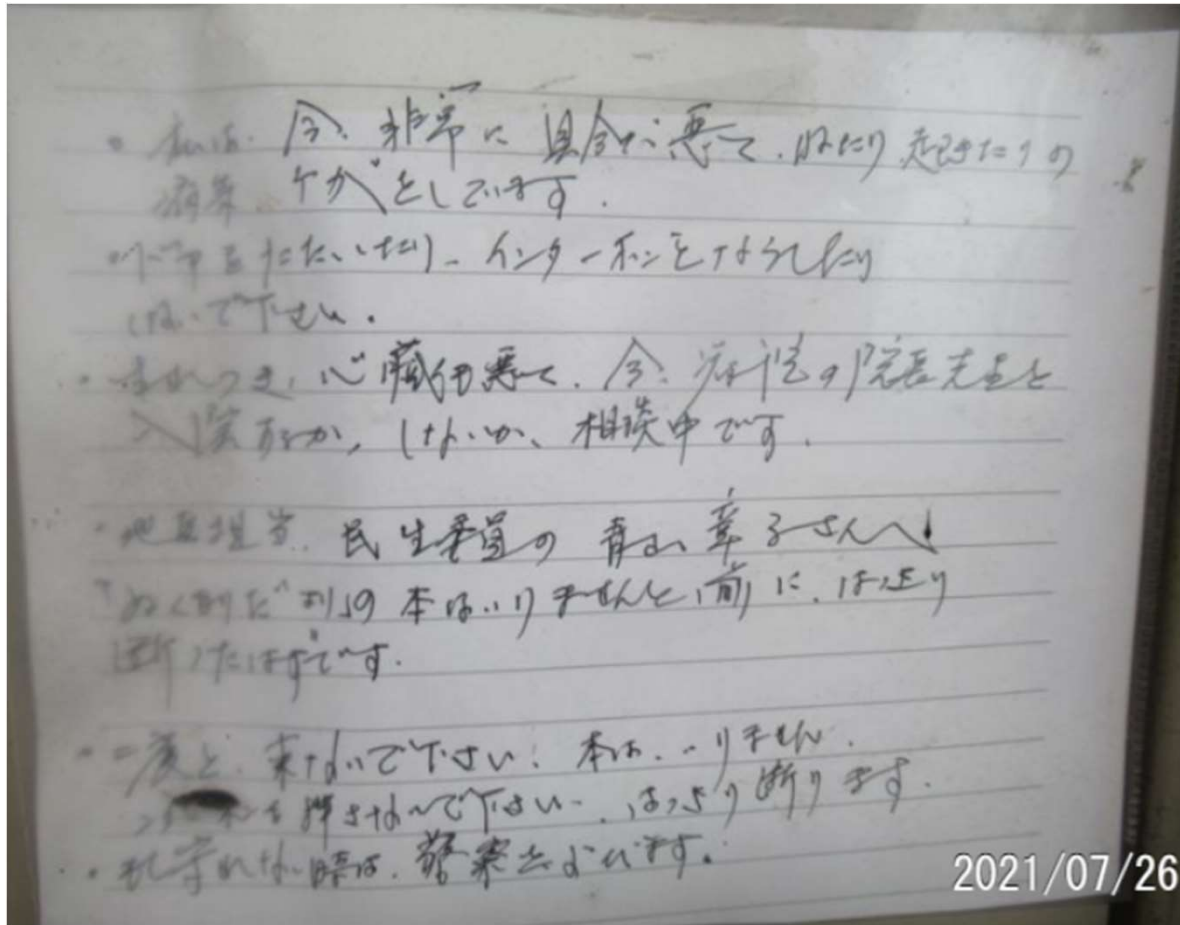 ・私は、今、非常に具合が悪くて、ねたり起きたりの
病気、ケガをしています。
たたいたり、インターホンをならしたり
しないで下さい。
・生れつき、心臓も悪くて、今、病院の院長先生と
入院するか、しないか、相談中です。
・地区担当、民生委員の青山 幸子さんへ
の本はいりませんと、前に、はっきり
断ったはずです。
・二度と、来ないで下さい! 本は、いりません。
を押さないで下さい、はっきり断ります。
・守れない時は、警察をよびます。
2021/07/26